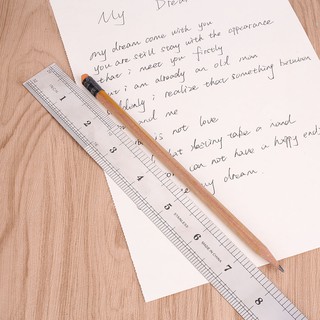 My Dream
my dream come with you
you are still stay with the appearance
that i meet you firstly
but i am already an old man
suddenly i realize that something between
and me
is not love
that destiny take a hand
can not have a happy end
my dream
1
2
3
4
5
6
7
8